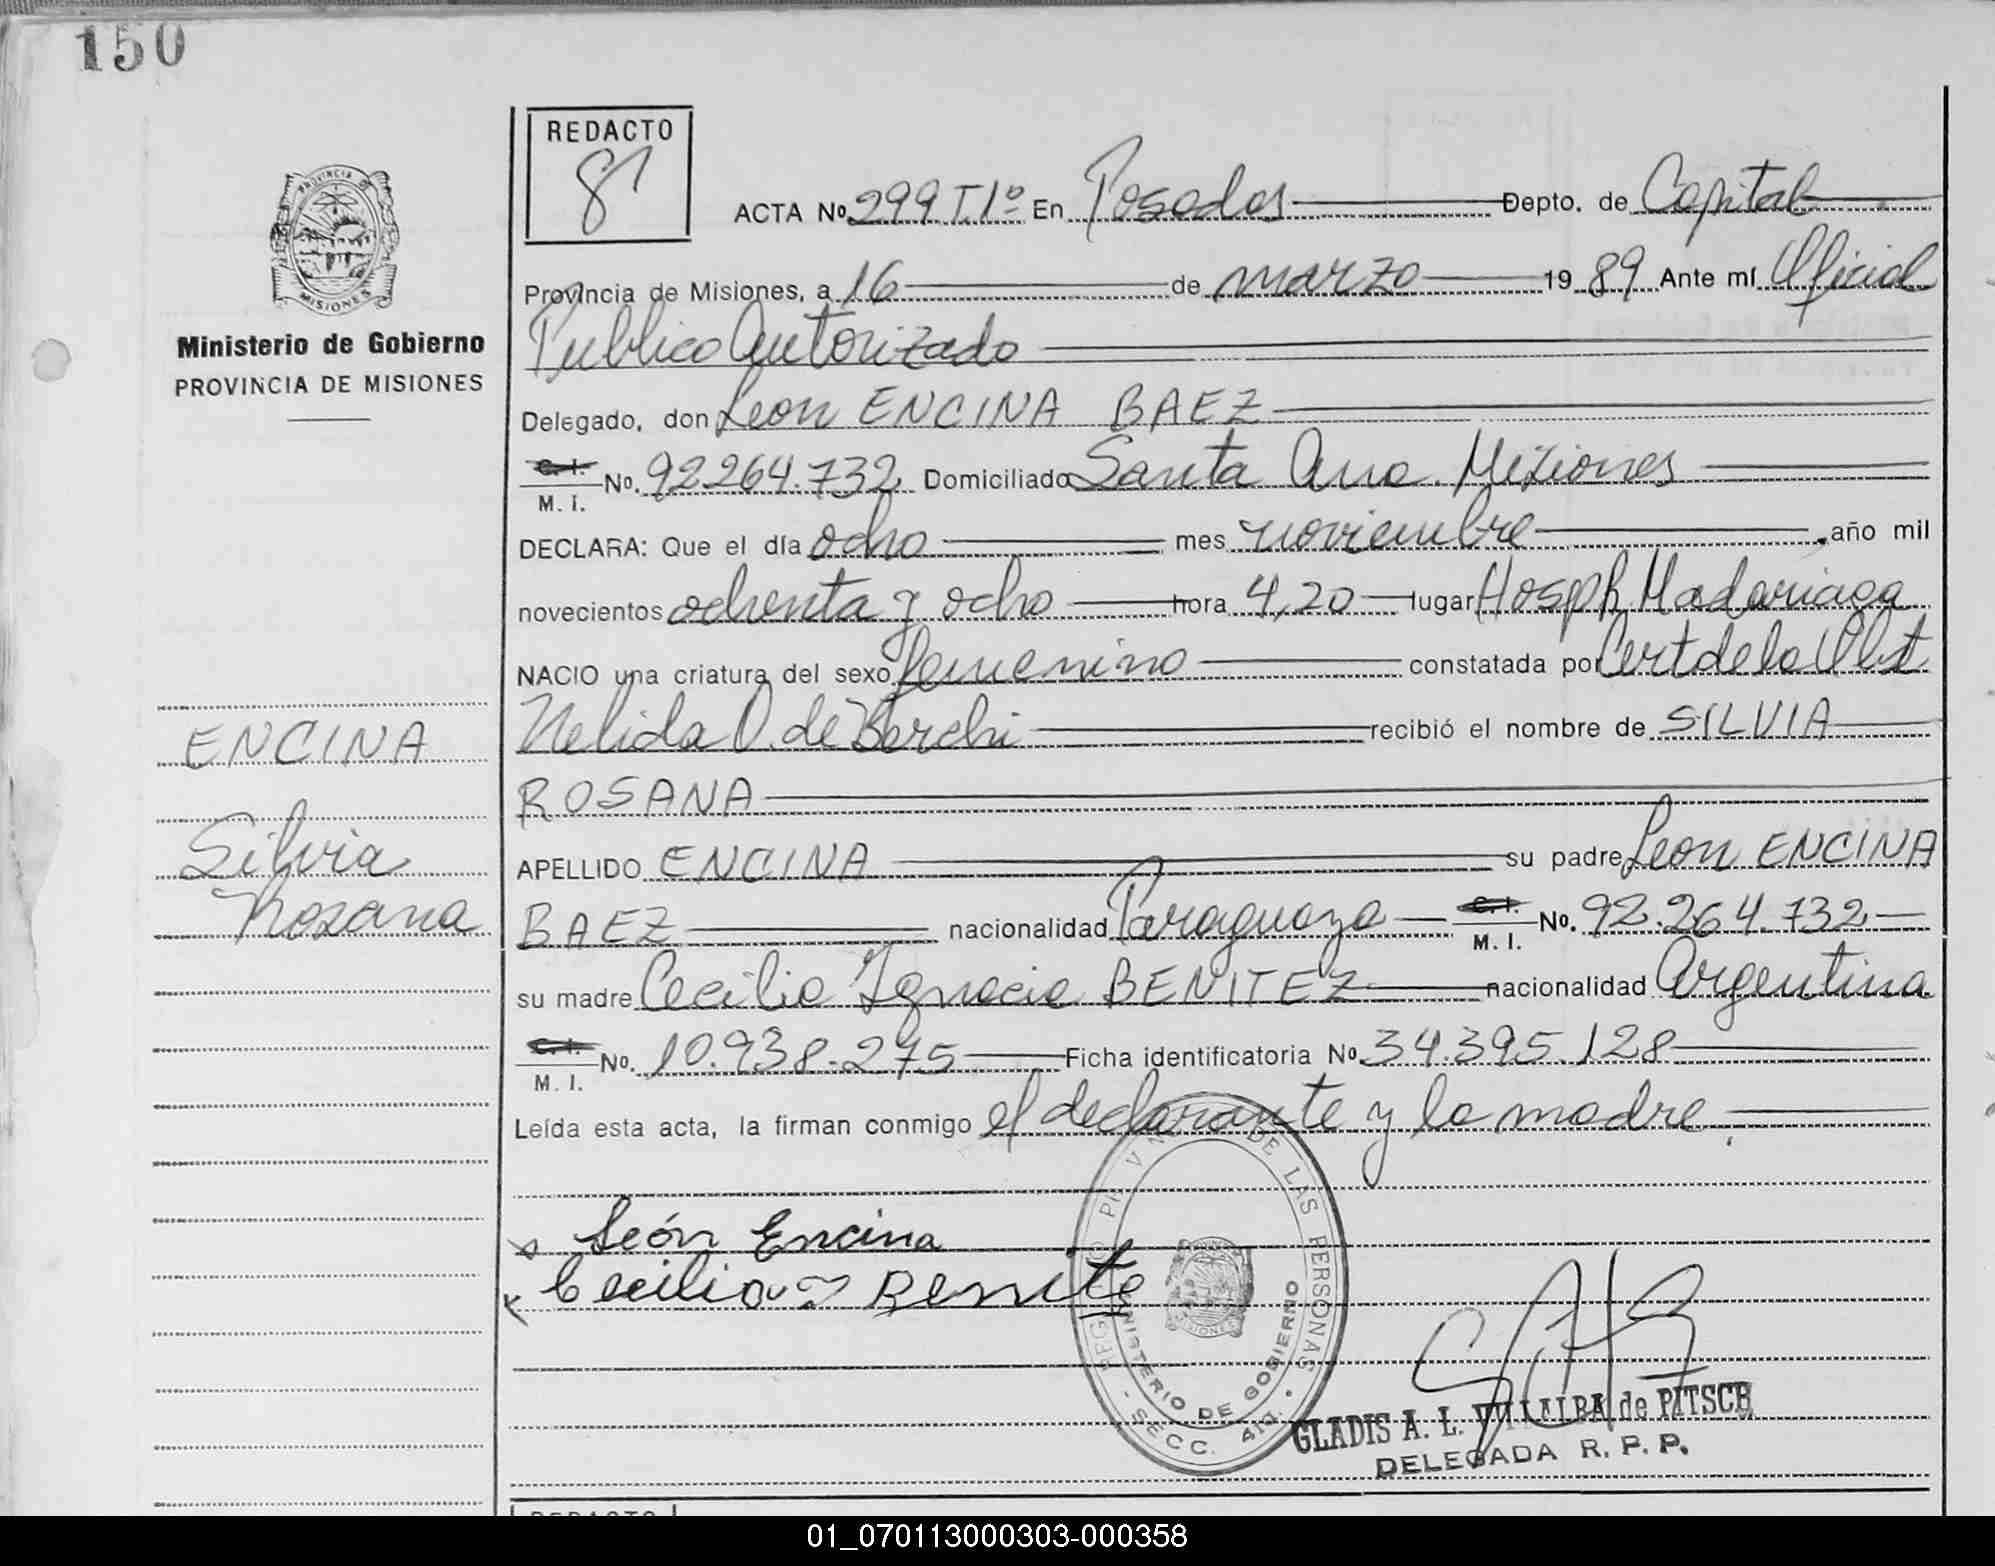 150
REDACTO
8
ACTA Nº 299 T.1º En Posadas Depto. de Capital
Provincia de Misiones, a 16 de marzo 19 89 Ante mí Oficial
Publico Autorizado
Delegado, don Leon ENCINA BAEZ
C. I.
M. I. Nº. 92.264.732 Domiciliado Santa Ana. Misiones
DECLARA: Que el día ocho mes noviembre, año mil
novecientos ochenta y ocho hora 4,20 lugar Hosp R. Madariaga
NACIO una criatura del sexo femenino constatada por Cert de la Obst
Nelida O. de Berchi recibió el nombre de SILVIA
ROSANA
APELLIDO ENCINA su padre Leon ENCINA
BAEZ nacionalidad Paraguaya C. I. M. I. Nº. 92.264.732
su madre Cecilia Ignacia BENITEZ nacionalidad Argentina
C. I.
M. I. Nº. 10.938.275 Ficha identificatoria Nº 34.395.128
Leída esta acta, la firman conmigo el declarante y la madre.
León Encina
Cecilia Benite
PROVINCIA DE
MISIONES
Ministerio de Gobierno
PROVINCIA DE MISIONES
ENCINA
Silvia
Rosana
DE LAS PERSONAS
MINISTERIO DE GOBIERNO
MISIONES
SECC.
GLADIS A. L. VILLALBA de PITSCH
DELEGADA R. P. P.
REDACTO
01_070113000303-000358